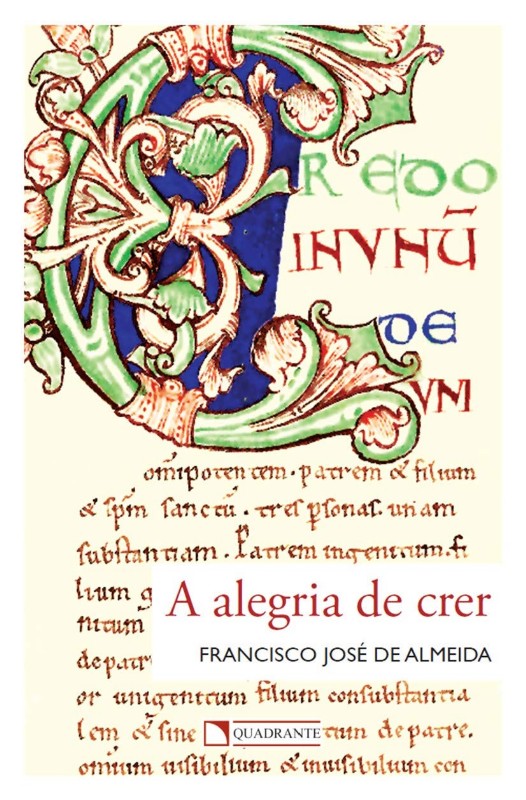 CREDO
INUNŪ
DE
VM
om̅ipotentem · patrem & filium
& sp̅m sanctū · tres p̱sonas · unam
substantiam. Patrem ingenitum · fi
lium g
nitum
depatr
or unigenitum filium consubstantia
lem & sine
tum depatre.
omnium uisibilium & inuisibilium con
A alegria de crer
FRANCISCO JOSÉ DE ALMEIDA
QUADRANTE